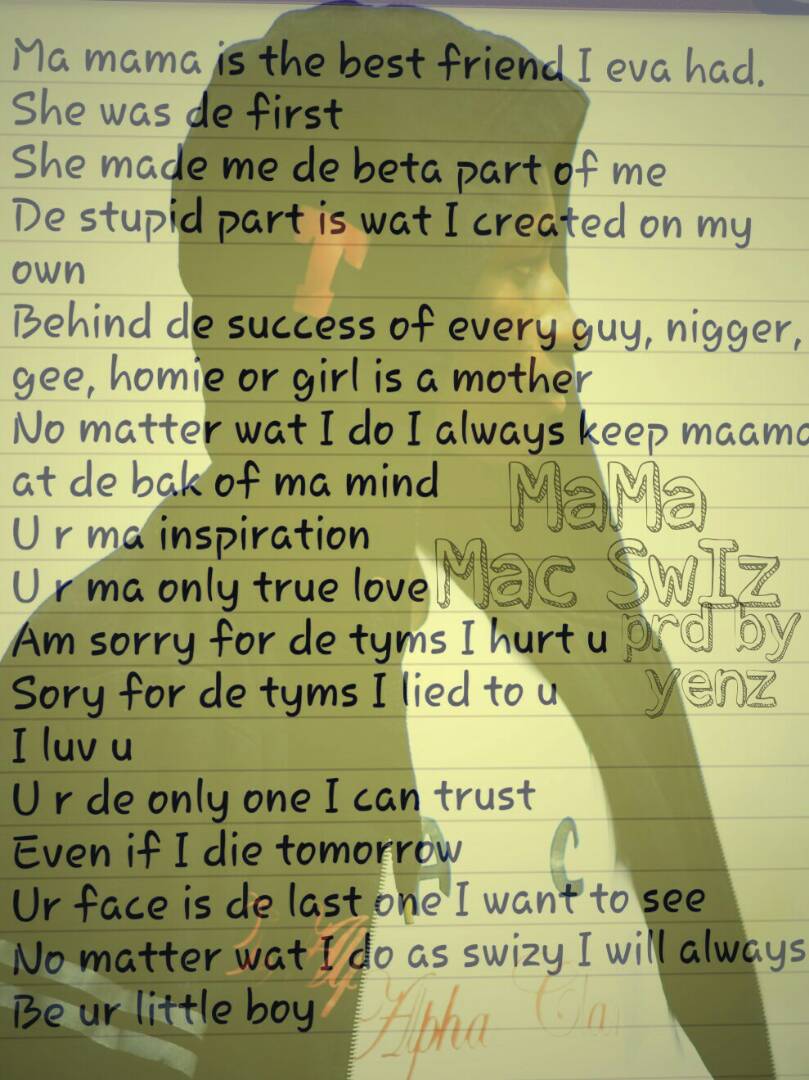 Ma mama is the best friend I eva had.
She was de first
She made me de beta part of me
De stupid part is wat I created on my
own
Behind de success of every guy, nigger,
gee, homie or girl is a mother
No matter wat I do I always keep maama
at de bak of ma mind
U r ma inspiration
U r ma only true love
Am sorry for de tyms I hurt u
Sory for de tyms I lied to u
I luv u
U r de only one I can trust
Even if I die tomorrow
Ur face is de last one I want to see
No matter wat I do as swizy I will always
Be ur little boy
MaMa
Mac SwIz
prd by
yenz
T
A C
Alpha